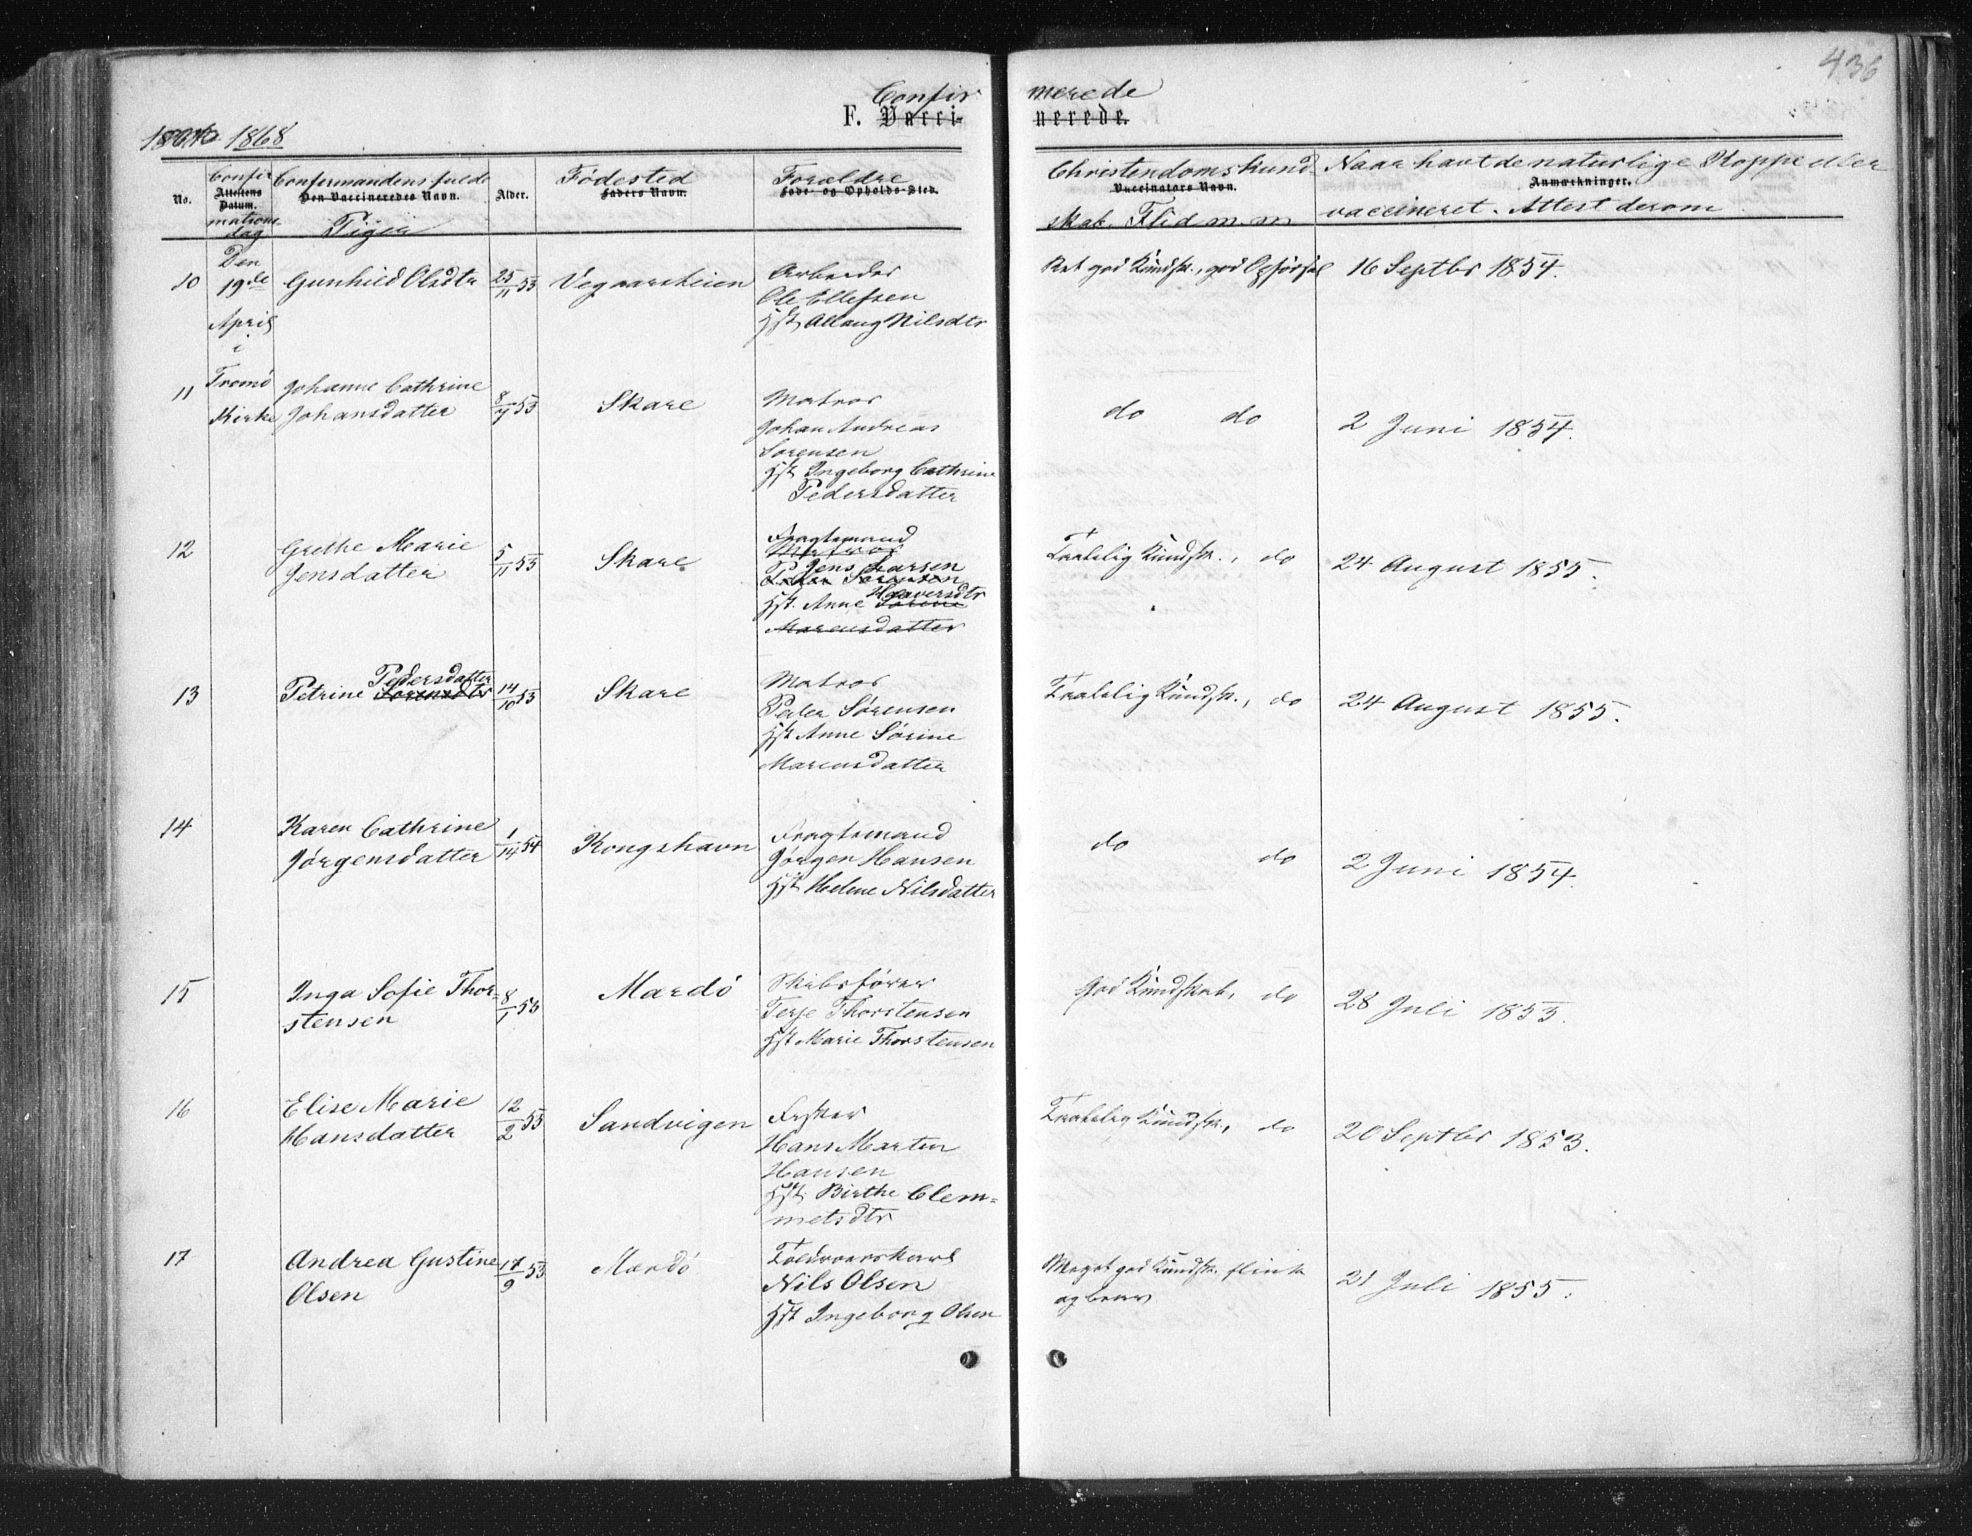 436
Confir merede
F. Vacci- nerede.
1868
No.
Confir
Attestens
Datum.
mations
dag
Confirmandens fulde
Den Vaccineredes Navn.
Piger
Alder.
Fødested
Faders Navn.
Forældre
Føde- og Opholds-Sted.
Christendomskund
Vaccinators Navn.
skab, Flid m. m
Naar havt de naturlige Kopper eller
Anmærkninger.
vaccineret. Attest derom
10 Den 19de April i Gunhild Olsdtr 25/11 53 Vegaarsheien
Arbeider
Ole Ellefsen
Hst Allaug Nilsdtr
Ret god Kundsk., god Opførsel 16 Septbr 1854.
11 Tromö Kirke
Johanne Cathrine
Johansdatter
8/7 53 Skare
Matros
Johan Andreas
Sørensen
Hst Ingeborg Cathrine
Pedersdatter
do do 2 Juni 1854.
12 Grethe Marie
Jensdatter
5/11 53 Skare
Fragtemand
Matros
Jens Larsen
Peder Sørensen
Haaversdtr
Hst. Anne Sørine
Marensdatter
Taalelig Kundsk., do 24 August 1855.
Pedersdatter
13 Petrine Sørensdtr 14/10 53 Skare
Matros
Peder Sørensen
Hst Anne Sørine
Marensdatter
Taalelig Kundsk., do 24 August 1855.
14 Karen Cathrine
Jørgensdatter
1/14 54 Kongshavn
Fragtemand
Jørgen Hansen
Hst Helene Nilsdatter
do do 2 Juni 1854.
15 Inga Sofie Thor-
stensen
8/1 53 Mardö
Skibsfører
Terje Thorstensen
Hst Marie Thorstensen
God Kundskab, do 28 Juli 1853.
16 Elise Marie
Hansdatter
12/2 53 Sandvigen
Fisker
Hans Martin
Hansen
Hst Birthe Clem-
metsdtr
Taalelig Kundsk., do 20 Septbr 1853.
17 Andrea Gustine
Olsen
17/9 53 Mærdö
Toldroerskarl
Nils Olsen
Hst Ingeborg Olsen
Meget god Kundsk. flink
og brav
21 Juli 1855.